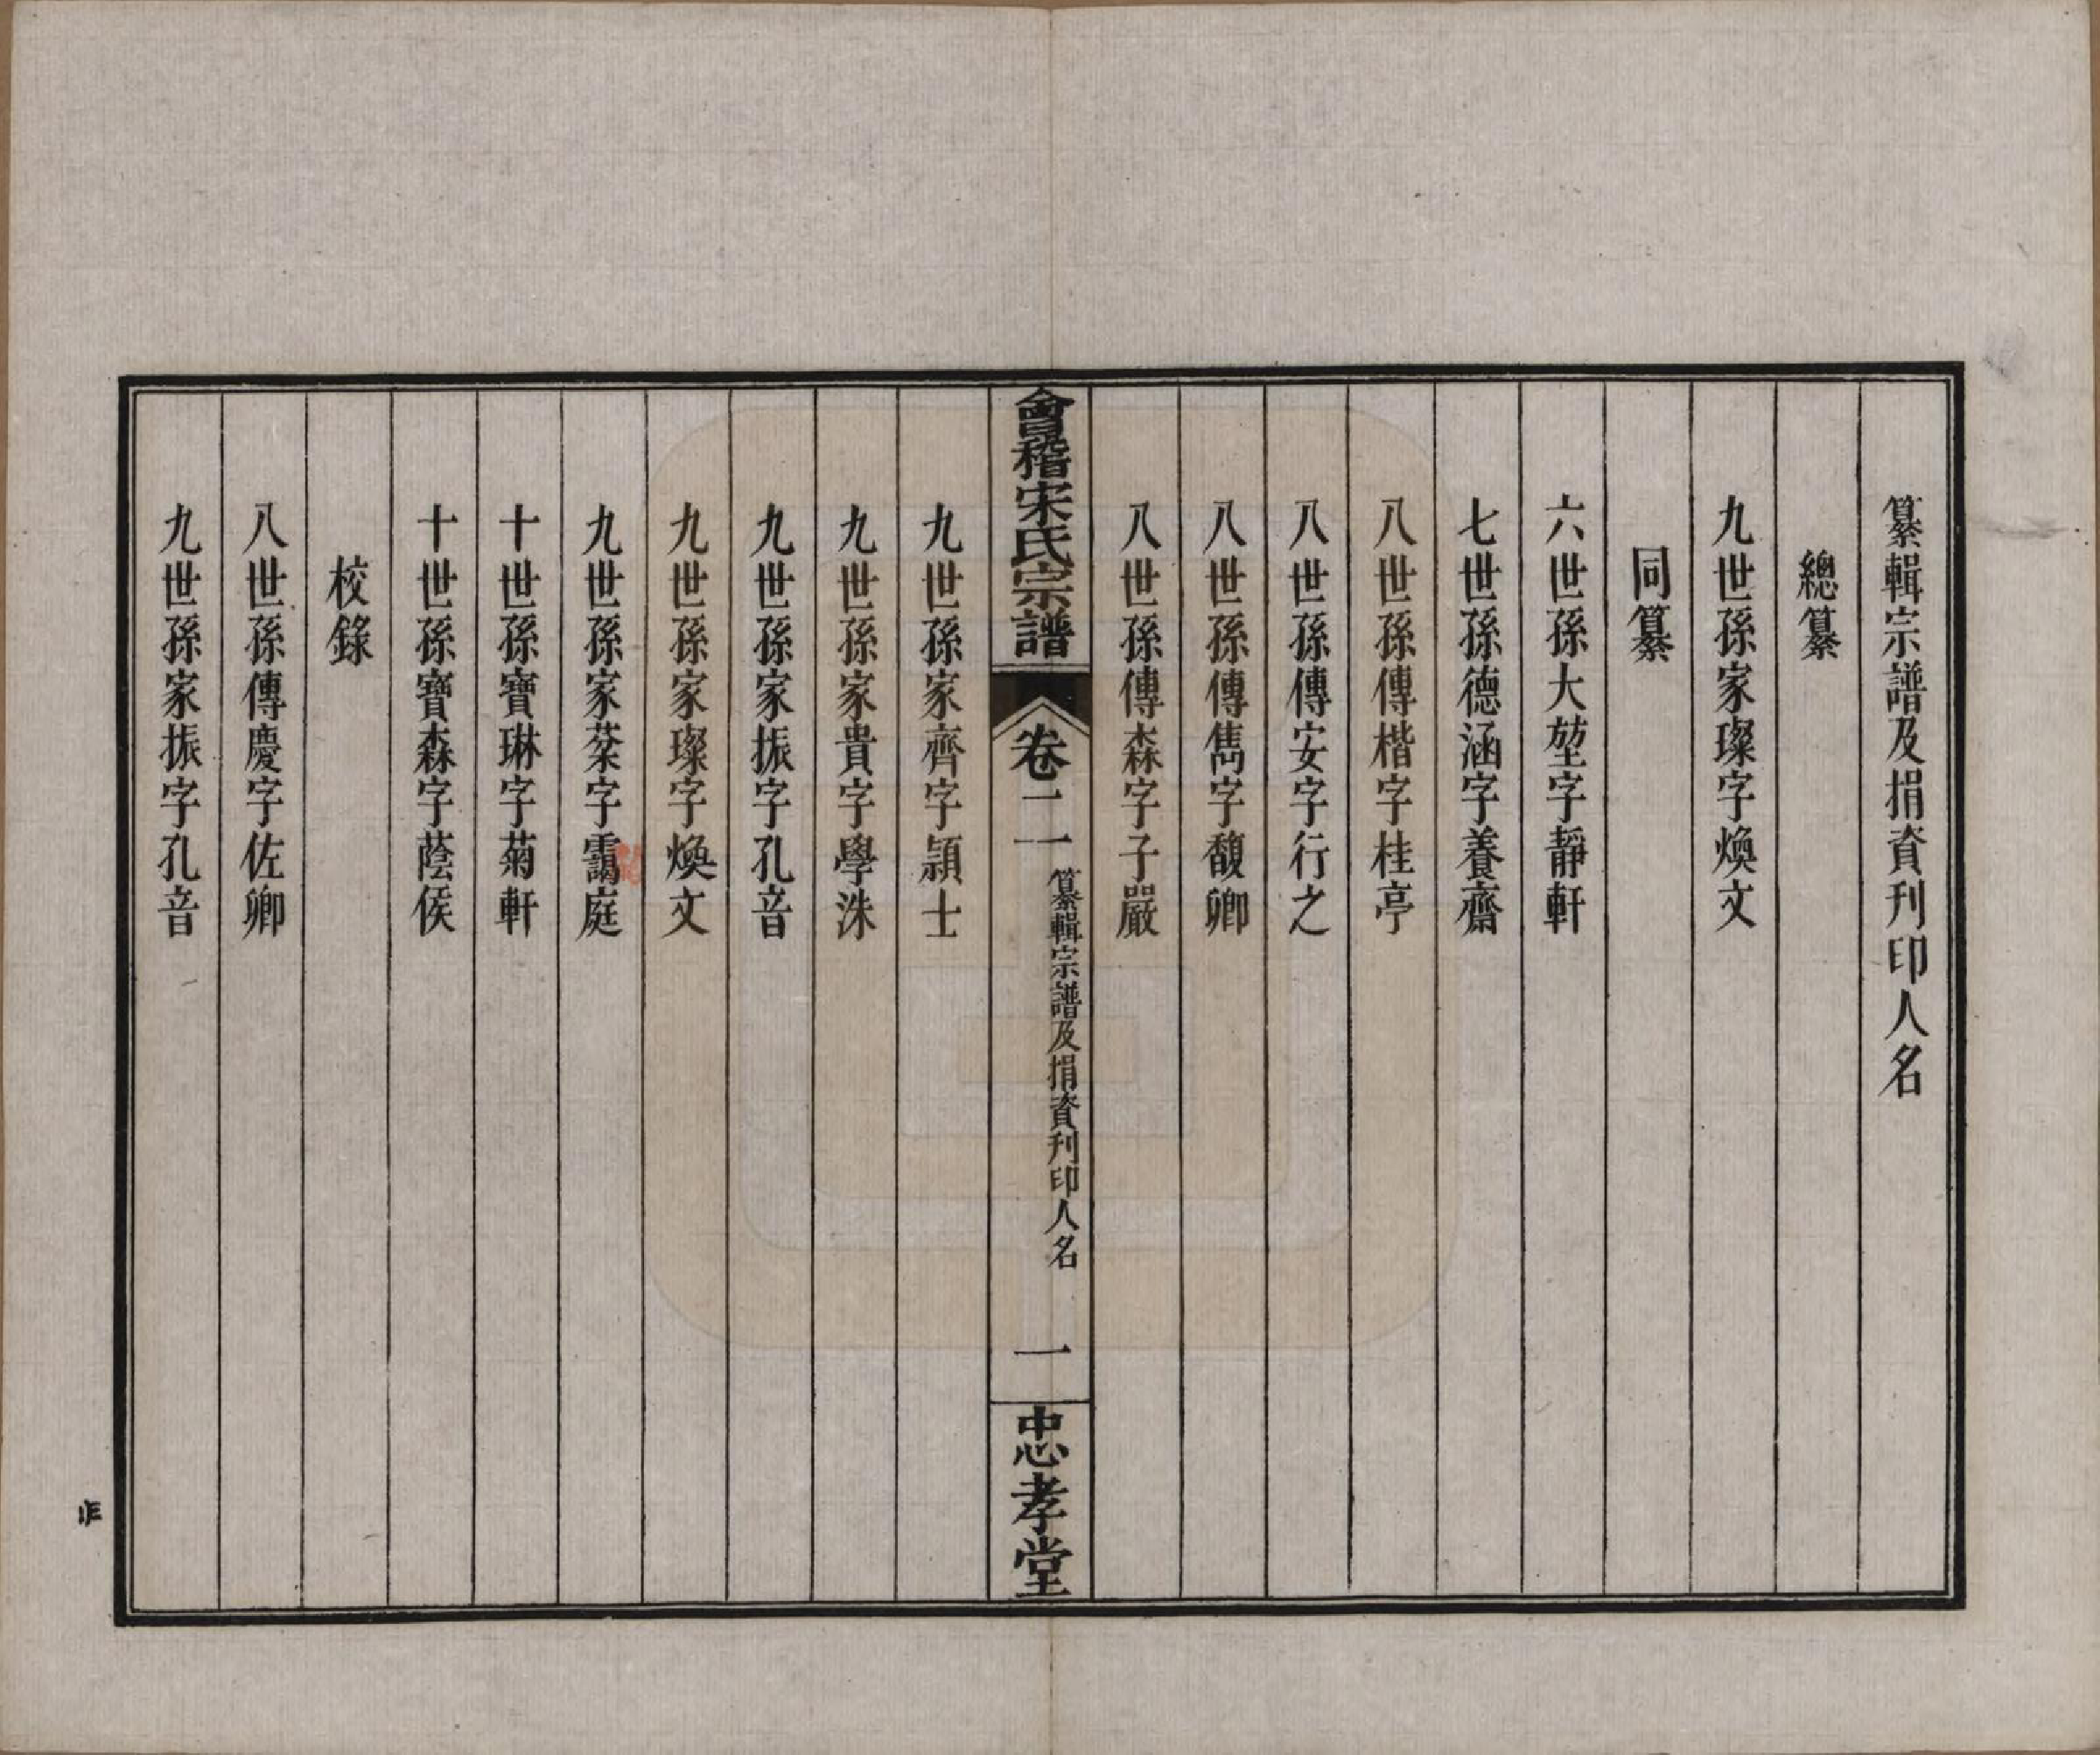 纂輯宗譜及捐資刊印人名
總纂
九世孫家璨字煥文
同纂
六世孫大堃字靜軒
七世孫德涵字養齋
八世孫傳楷字桂亭
八世孫傳安字行之
八世孫傳雋字馥卿
八世孫傳森字子嚴
會稽宋氏宗譜
卷一
一
纂輯宗譜及捐資刊印人名
一
忠孝堂
九世孫家齊字頴士
九世孫家貴字學洙
九世孫家振字孔音
九世孫家璨字煥文
九世孫家棻字靄庭
十世孫寶琳字菊軒
十世孫寶森字蔭侯
校錄
八世孫傳慶字佐卿
九世孫家振字孔音